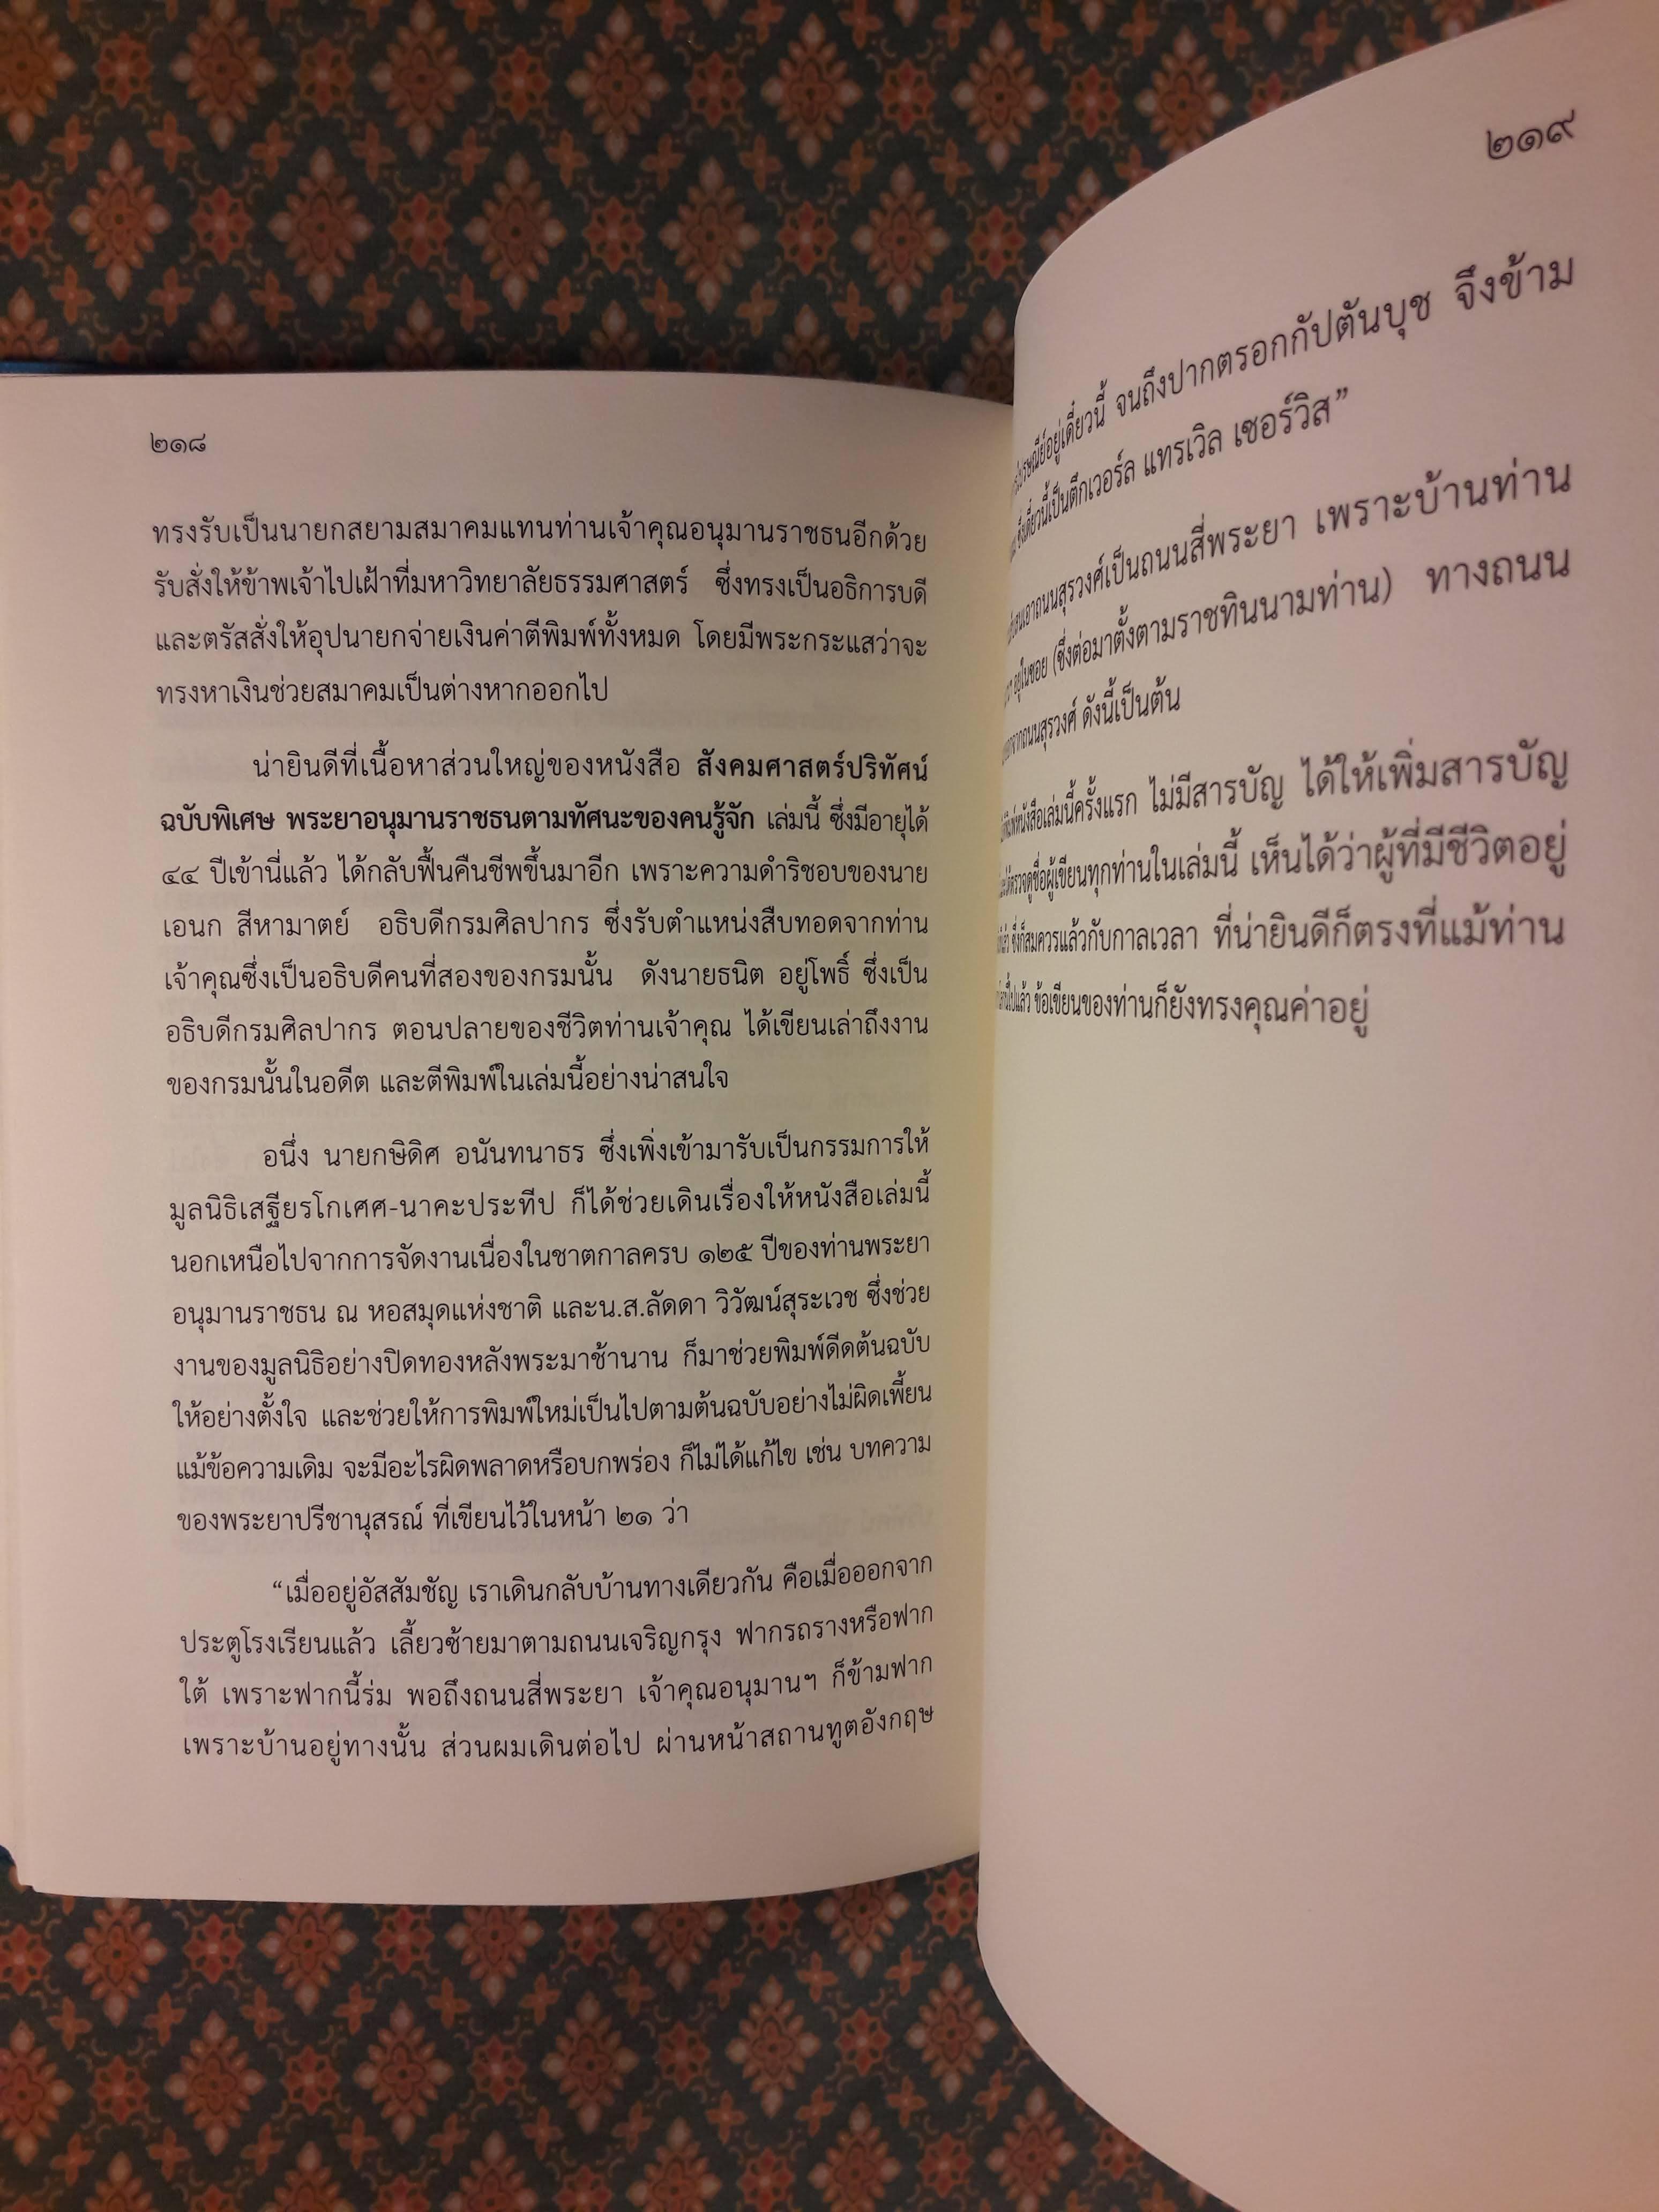 ๒๑๘
ทรงรับเป็นนายกสยามสมาคมแทนท่านเจ้าคุณอนุมานราชธนอีกด้วย
รับสั่งให้ข้าพเจ้าไปเฝ้าที่มหาวิทยาลัยธรรมศาสตร์ ซึ่งทรงเป็นอธิการบดี
และตรัสสั่งให้อุปนายกจ่ายเงินค่าตีพิมพ์ทั้งหมด โดยมีพระกระแสว่าจะ
ทรงหาเงินช่วยสมาคมเป็นต่างหากออกไป
น่ายินดีที่เนื้อหาส่วนใหญ่ของหนังสือ สังคมศาสตร์ปริทัศน์
ฉบับพิเศษ พระยาอนุมานราชธนตามทัศนะของคนรู้จัก เล่มนี้ ซึ่งมีอายุได้
๔๔ ปีเข้านี่แล้ว ได้กลับฟื้นคืนชีพขึ้นมาอีก เพราะความดำริชอบของนาย
เอนก สีหามาตย์ อธิบดีกรมศิลปากร ซึ่งรับตำแหน่งสืบทอดจากท่าน
เจ้าคุณซึ่งเป็นอธิบดีคนที่สองของกรมนั้น ดังนายธนิต อยู่โพธิ์ ซึ่งเป็น
อธิบดีกรมศิลปากร ตอนปลายของชีวิตท่านเจ้าคุณ ได้เขียนเล่าถึงงาน
ของกรมนั้นในอดีต และตีพิมพ์ในเล่มนี้อย่างน่าสนใจ
อนึ่ง นายกษิดิศ อนันทนาธร ซึ่งเพิ่งเข้ามารับเป็นกรรมการให้
มูลนิธิเสฐียรโกเศศ-นาคะประทีป ก็ได้ช่วยเดินเรื่องให้หนังสือเล่มนี้
นอกเหนือไปจากการจัดงานเนื่องในชาตกาลครบ ๑๒๕ ปีของท่านพระยา
อนุมานราชธน ณ หอสมุดแห่งชาติ และน.ส.ลัดดา วิวัฒน์สุระเวช ซึ่งช่วย
งานของมูลนิธิอย่างปิดทองหลังพระมาช้านาน ก็มาช่วยพิมพ์ดีดต้นฉบับ
ให้อย่างตั้งใจ และช่วยให้การพิมพ์ใหม่เป็นไปตามต้นฉบับอย่างไม่ผิดเพี้ยน
แม้ข้อความเดิม จะมีอะไรผิดพลาดหรือบกพร่อง ก็ไม่ได้แก้ไข เช่น บทความ
ของพระยาปรีชานุสรณ์ ที่เขียนไว้ในหน้า ๒๑ ว่า
“เมื่ออยู่อัสสัมชัญ เราเดินกลับบ้านทางเดียวกัน คือเมื่อออกจาก
ประตูโรงเรียนแล้ว เลี้ยวซ้ายมาตามถนนเจริญกรุง ฟากรถรางหรือฟาก
ใต้ เพราะฟากนี้ร่ม พอถึงถนนสี่พระยา เจ้าคุณอนุมานฯ ก็ข้ามฟาก
เพราะบ้านอยู่ทางนั้น ส่วนผมเดินต่อไป ผ่านหน้าสถานทูตอังกฤษ
๒๑๙
อยู่เดี๋ยวนี้ จนถึงปากตรอกกัปตันบุช จึงข้าม
ซึ่งเดี๋ยวนี้เป็นตึกเวอร์ล แทรเวิล เซอร์วิส”
ถนนสุรวงศ์เป็นถนนสี่พระยา เพราะบ้านท่าน
อยู่ในซอย (ซึ่งต่อมาตั้งตามราชทินนามท่าน) ทางถนน
จากถนนสุรวงศ์ ดังนี้เป็นต้น
หนังสือเล่มนี้ครั้งแรก ไม่มีสารบัญ ได้ให้เพิ่มสารบัญ
ตรวจดูชื่อผู้เขียนทุกท่านในเล่มนี้ เห็นได้ว่าผู้ที่มีชีวิตอยู่
ซึ่งก็สมควรแล้วกับกาลเวลา ที่น่ายินดีก็ตรงที่แม้ท่าน
ไปแล้ว ข้อเขียนของท่านก็ยังทรงคุณค่าอยู่